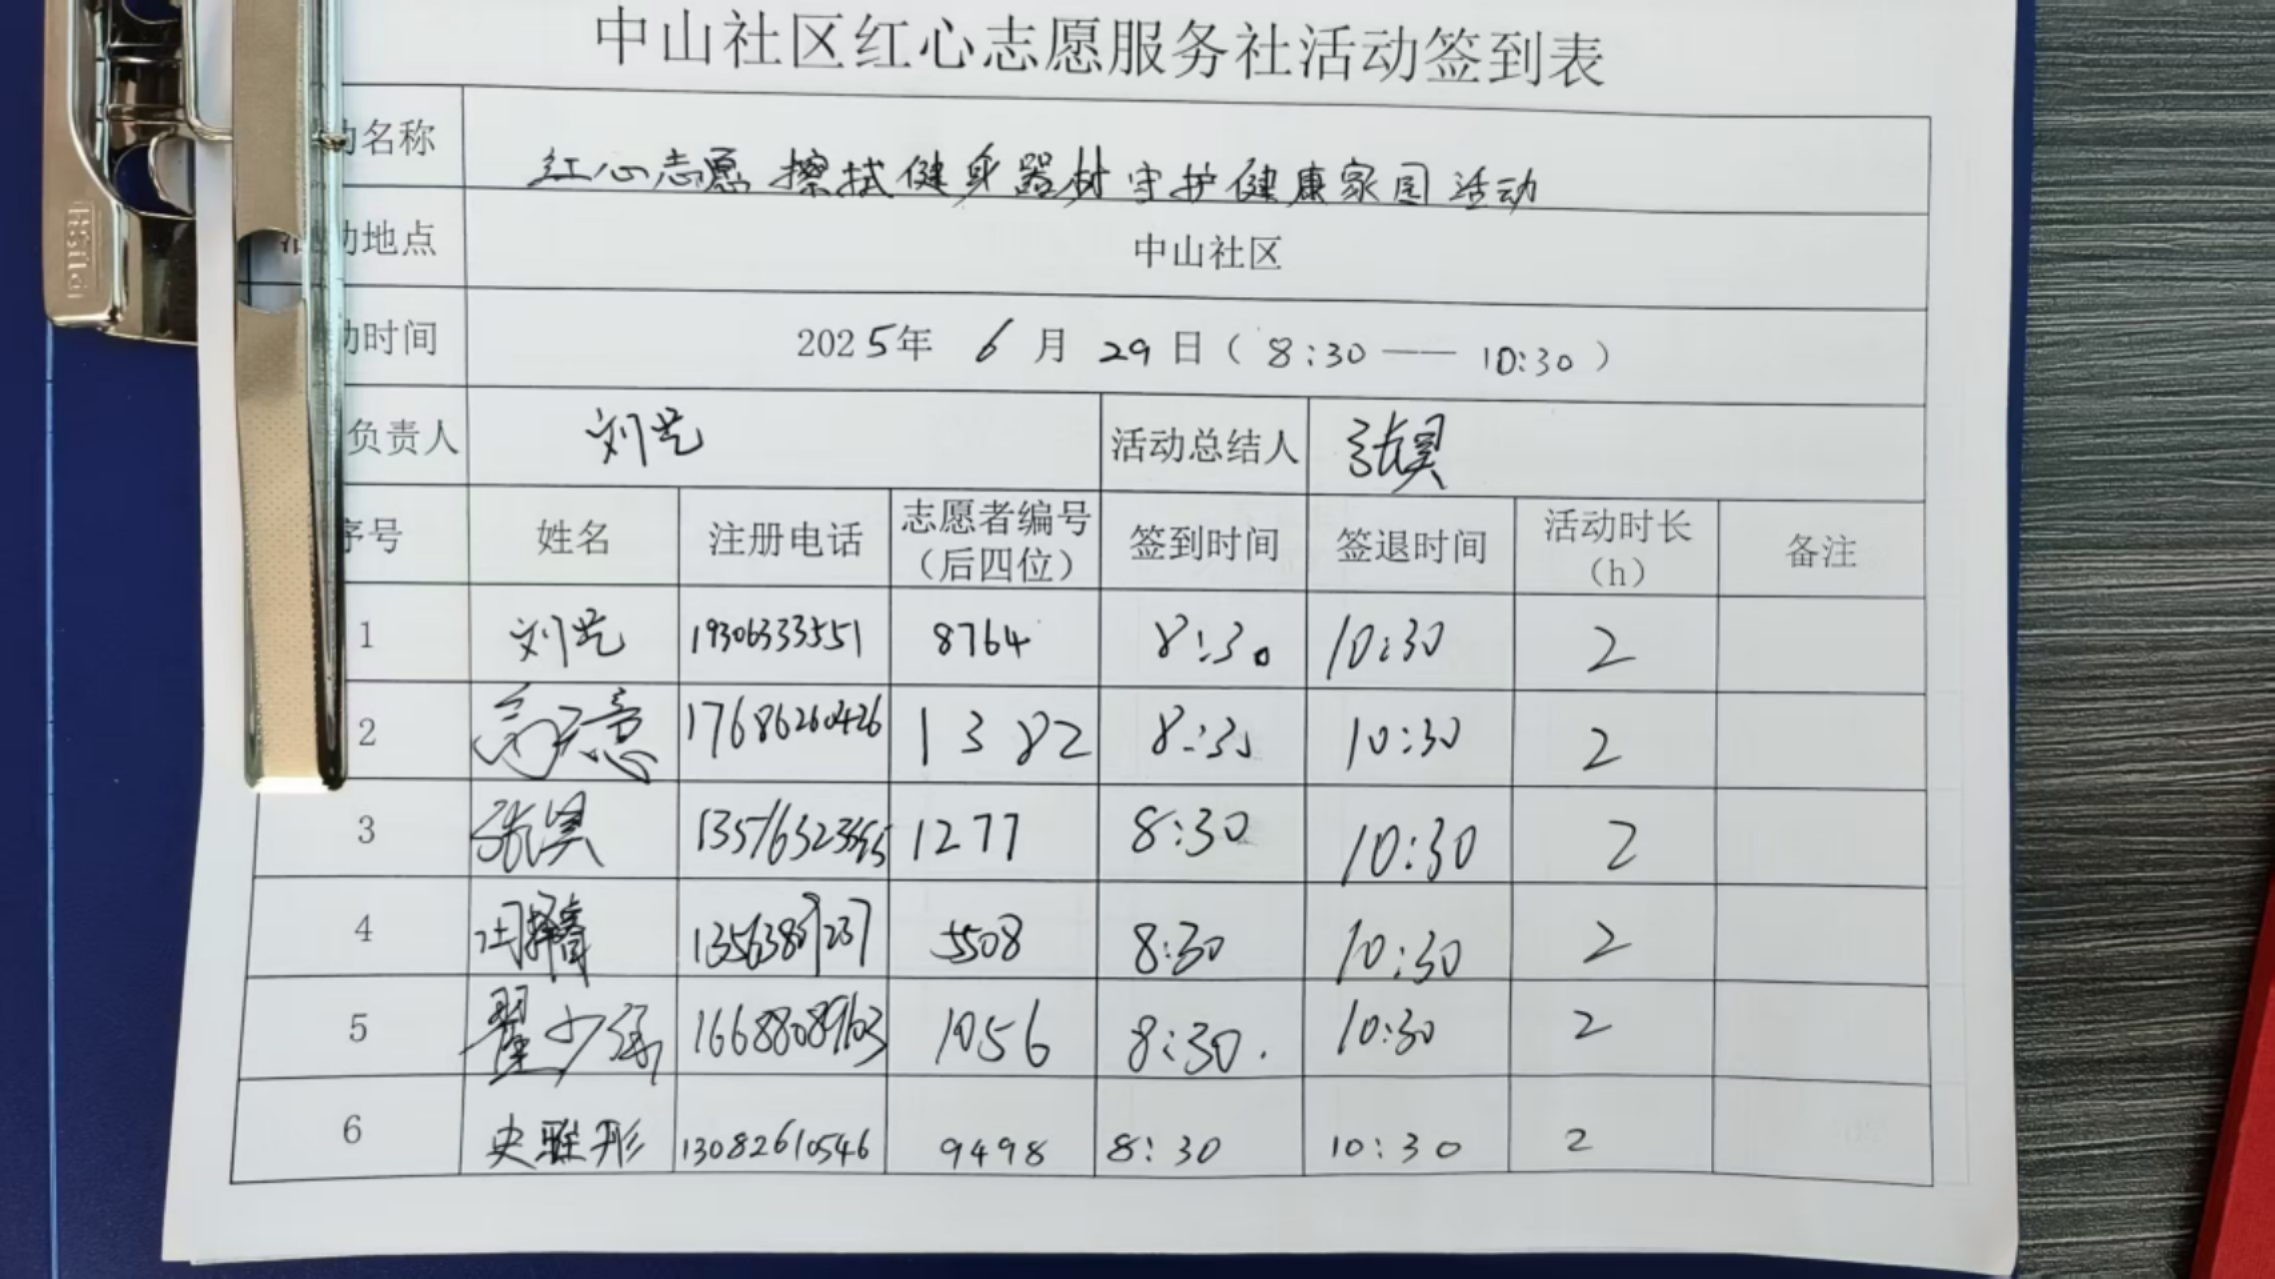 中山社区红心志愿服务社活动签到表
动名称 红心志愿 擦拭健身器材守护健康家园活动
活动地点 中山社区
动时间 2025年 6 月 29 日（8:30 —— 10:30）
负责人 刘艺 活动总结人 张昊
序号 姓名 注册电话 志愿者编号（后四位） 签到时间 签退时间 活动时长（h） 备注
1 刘艺 19306333551 8764 8:30 10:30 2
2 17686260426 1382 8:30 10:30 2
3 张昊 1277 8:30 10:30 2
4 5508 8:30 10:30 2
5 翟少 16688089163 1056 8:30. 10:30 2
6 史雅彤 13082610546 9498 8:30 10:30 2